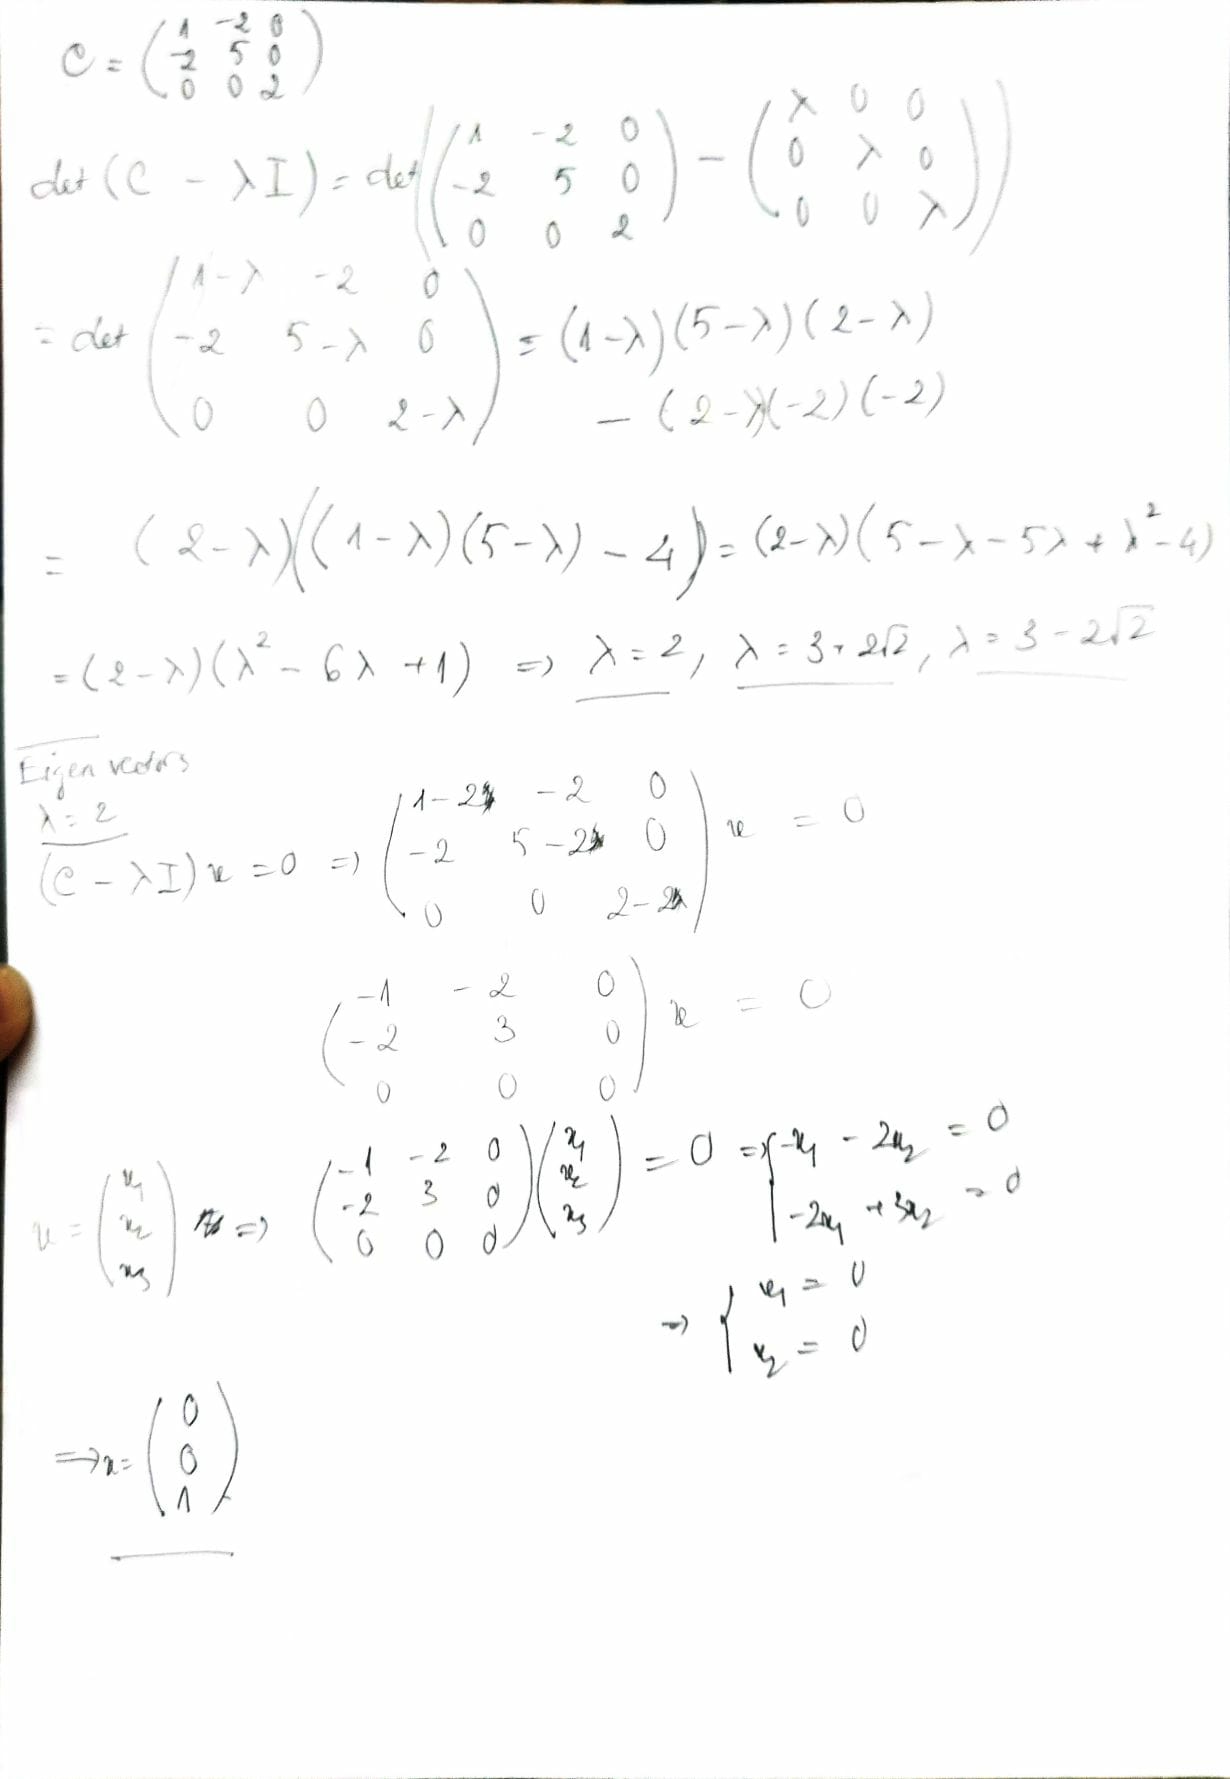 C = ( 1 -2 0
-2 5 0
0 0 2 )
det (C - λI) = det(( 1 -2 0
-2 5 0
0 0 2 ) - ( λ 0 0
0 λ 0
0 0 λ ))
= det ( 1-λ -2 0
-2 5-λ 0
0 0 2-λ ) = (1-λ)(5-λ)(2-λ)
- (2-λ)(-2)(-2)
= (2-λ)((1-λ)(5-λ) - 4) = (2-λ)(5-λ-5λ+λ²-4)
= (2-λ)(λ² - 6λ +1) => λ=2, λ=3+2√2, λ=3-2√2
Eigen vectors
λ=2
(C - λI)x = 0 => ( 1-2 -2 0
-2 5-2 0
0 0 2-2 ) x = 0
( -1 -2 0
-2 3 0
0 0 0 ) x = 0
x = ( x₁
x₂
x₃ ) => ( -1 -2 0
-2 3 0
0 0 0 ) ( x₁
x₂
x₃ ) = 0 => { -x₁ - 2x₂ = 0
-2x₁ + 3x₂ = 0
=> { x₁ = 0
x₂ = 0
=> x = ( 0
0
1 )